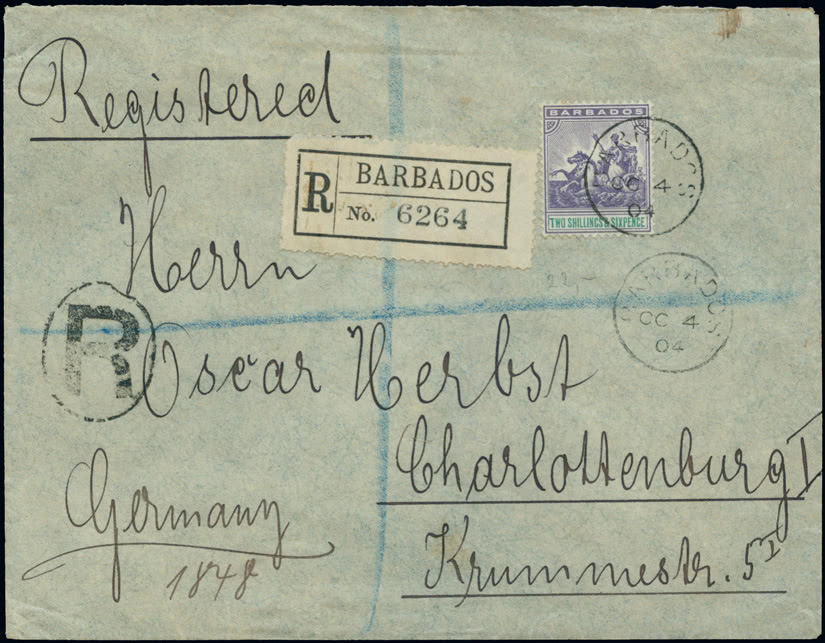 Registered
BARBADOS
TWO SHILLINGS & SIXPENCE
BARBADOS
OC 4
04
R
BARBADOS
No. 6264
Herrn
22,-
BARBADOS
OC 4
04
R
Oscar Herbst
Charlottenburg I
Krummestr. 5 I
Germany
1848